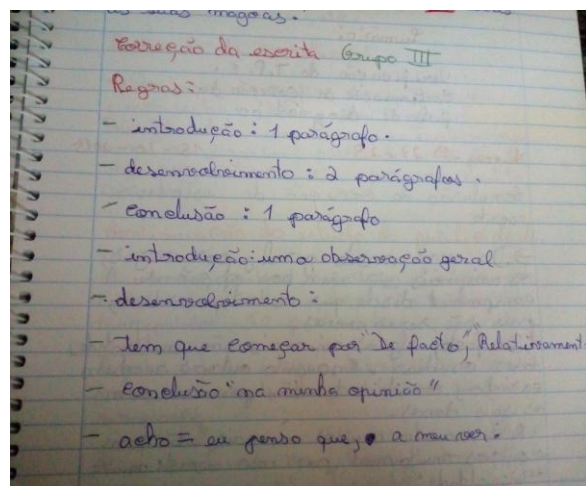 as suas mágoas.
Correção da escrita Grupo III
Regras:
- introdução: 1 parágrafo.
- desenvolvimento: 2 parágrafos.
- Conclusão: 1 parágrafo
- introdução: uma observação geral
- desenvolvimento:
- Tem que começar por "De facto", "Relativamente
- conclusão "na minha opinião"
- acho = eu penso que, a meu ver.